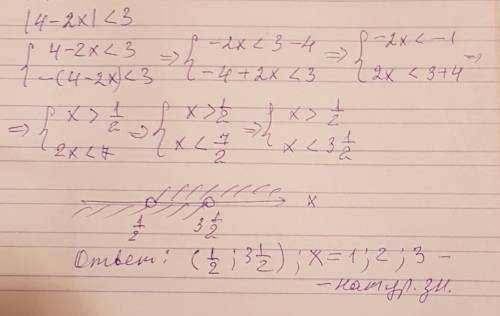 |4-2x|<3
{ 4-2x<3 ⇒ { -2x<3-4 ⇒ { -2x<-1 ⇒
{ -(4-2x)<3 { -4+2x<3 { 2x<3+4
⇒ { x>1/2 ⇒ { x>1/2 ⇒ { x>1/2
{ 2x<7 { x<7/2 { x<3 1/2
1/2 3 1/2 x
Ответ: (1/2; 3 1/2); x=1; 2; 3 -
- натур. зн.